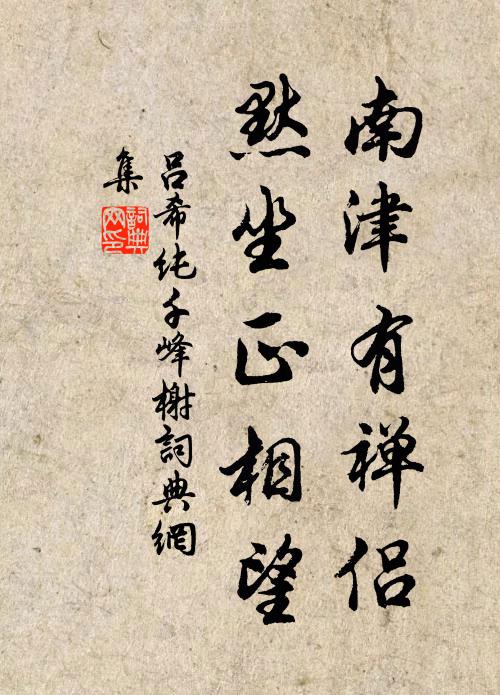 南津有禅侣
默坐正相望
吕希纯千峰榭詞典網
集
詞典
网印